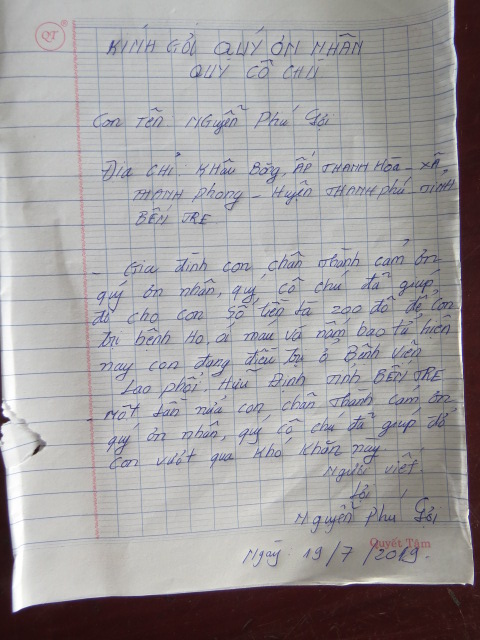 QT
KÍNH GỞI QUÝ ƠN NHÂN
QUÝ CÔ CHÚ
Con Tên Nguyễn Phú Lợi
Địa CHỈ: KHâu Băng, ẤP THANH Hòa - XÃ
THANH Phong - Huyện THANH phú - TỈNH
BẾN TRE
- Gia đình con chân thành cảm ơn
quý ơn nhân, quý cô chú đã giúp
đỡ cho con Số Tiền là 200 đô để con
trị bệnh Ho, ói máu và nấm bao tử hiện
nay con đang điều trị ở Bệnh viện
Lao phổi Hữu Định tỉnh BẾN TRE
- Một lần nữa con chân thành cảm ơn
quý ơn nhân, quý cô chú đã giúp đỡ
con vượt qua khó khăn này
Người viết
Lợi
Nguyễn Phú Lợi
Quyết Tâm
Ngày 19/7/2019.